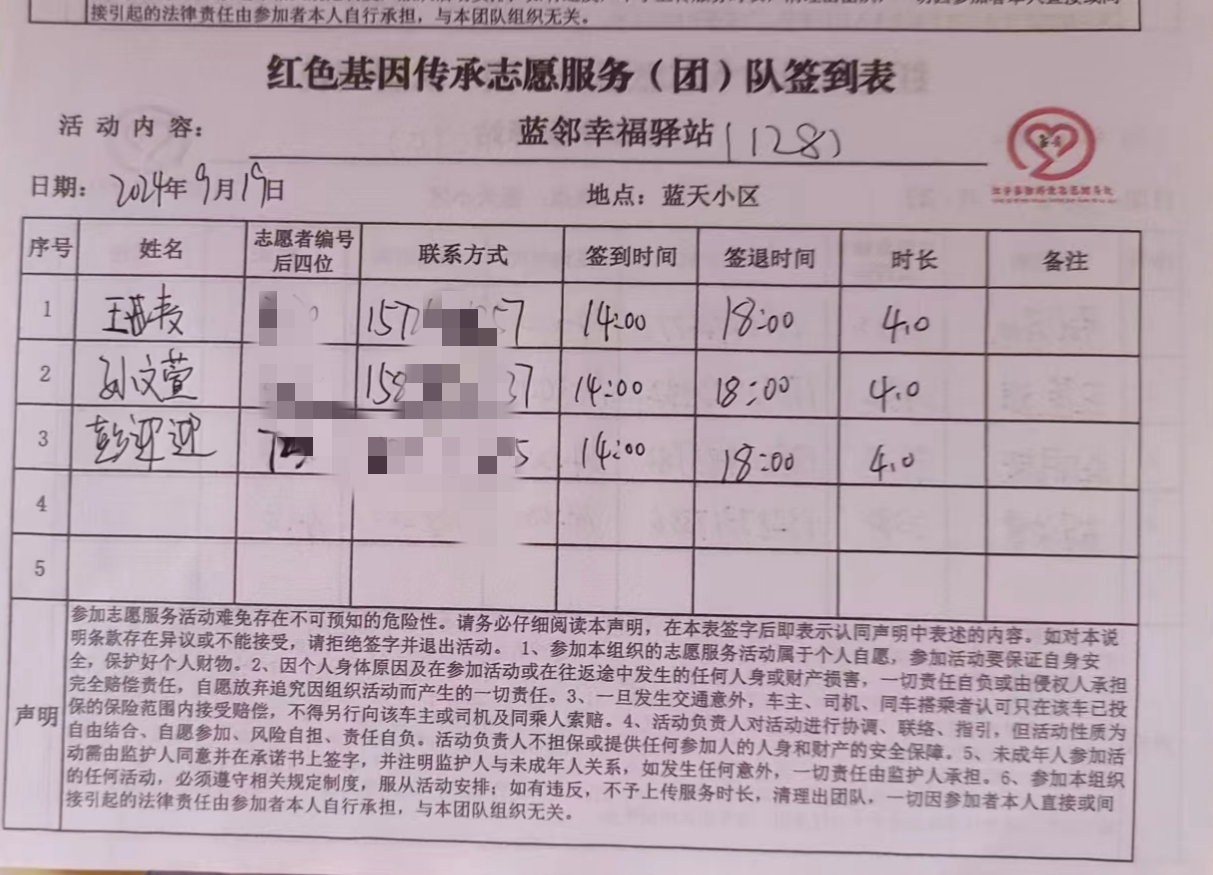 接引起的法律责任由参加者本人自行承担，与本团队组织无关。
红色基因传承志愿服务（团）队签到表
活 动 内 容： 蓝邻幸福驿站(128)
日期：2024年9月19日 地点：蓝天小区
序号 姓名 志愿者编号后四位 联系方式 签到时间 签退时间 时长 备注
1 14:00 18:00 4.0
2 孙文萱 14:00 18:00 4.0
3 彭迎 14:00 18:00 4.0
4
5
声明
参加志愿服务活动难免存在不可预知的危险性。请务必仔细阅读本声明，在本表签字后即表示认同声明中表述的内容。如对本说
明条款存在异议或不能接受，请拒绝签字并退出活动。 1、参加本组织的志愿服务活动属于个人自愿，参加活动要保证自身安
全，保护好个人财物。2、因个人身体原因及在参加活动或在往返途中发生的任何人身或财产损害，一切责任自负或由侵权人承担
完全赔偿责任，自愿放弃追究因组织活动而产生的一切责任。3、一旦发生交通意外，车主、司机、同车搭乘者认可只在该车已投
保的保险范围内接受赔偿，不得另行向该车主或司机及同乘人索赔。4、活动负责人对活动进行协调、联络、指引，但活动性质为
自由结合、自愿参加、风险自担、责任自负。活动负责人不担保或提供任何参加人的人身和财产的安全保障。5、未成年人参加活
动需由监护人同意并在承诺书上签字，并注明监护人与未成年人关系，如发生任何意外，一切责任由监护人承担。6、参加本组织
的任何活动，必须遵守相关规定制度，服从活动安排；如有违反，不予上传服务时长，清理出团队，一切因参加者本人直接或间
接引起的法律责任由参加者本人自行承担，与本团队组织无关。